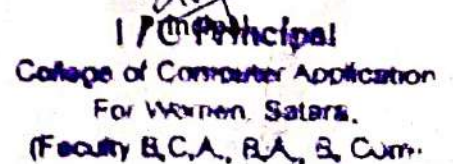 I/C Principal
College of Computer Application
For Women, Satara.
(Faculty B.C.A., B.A., B. Com.